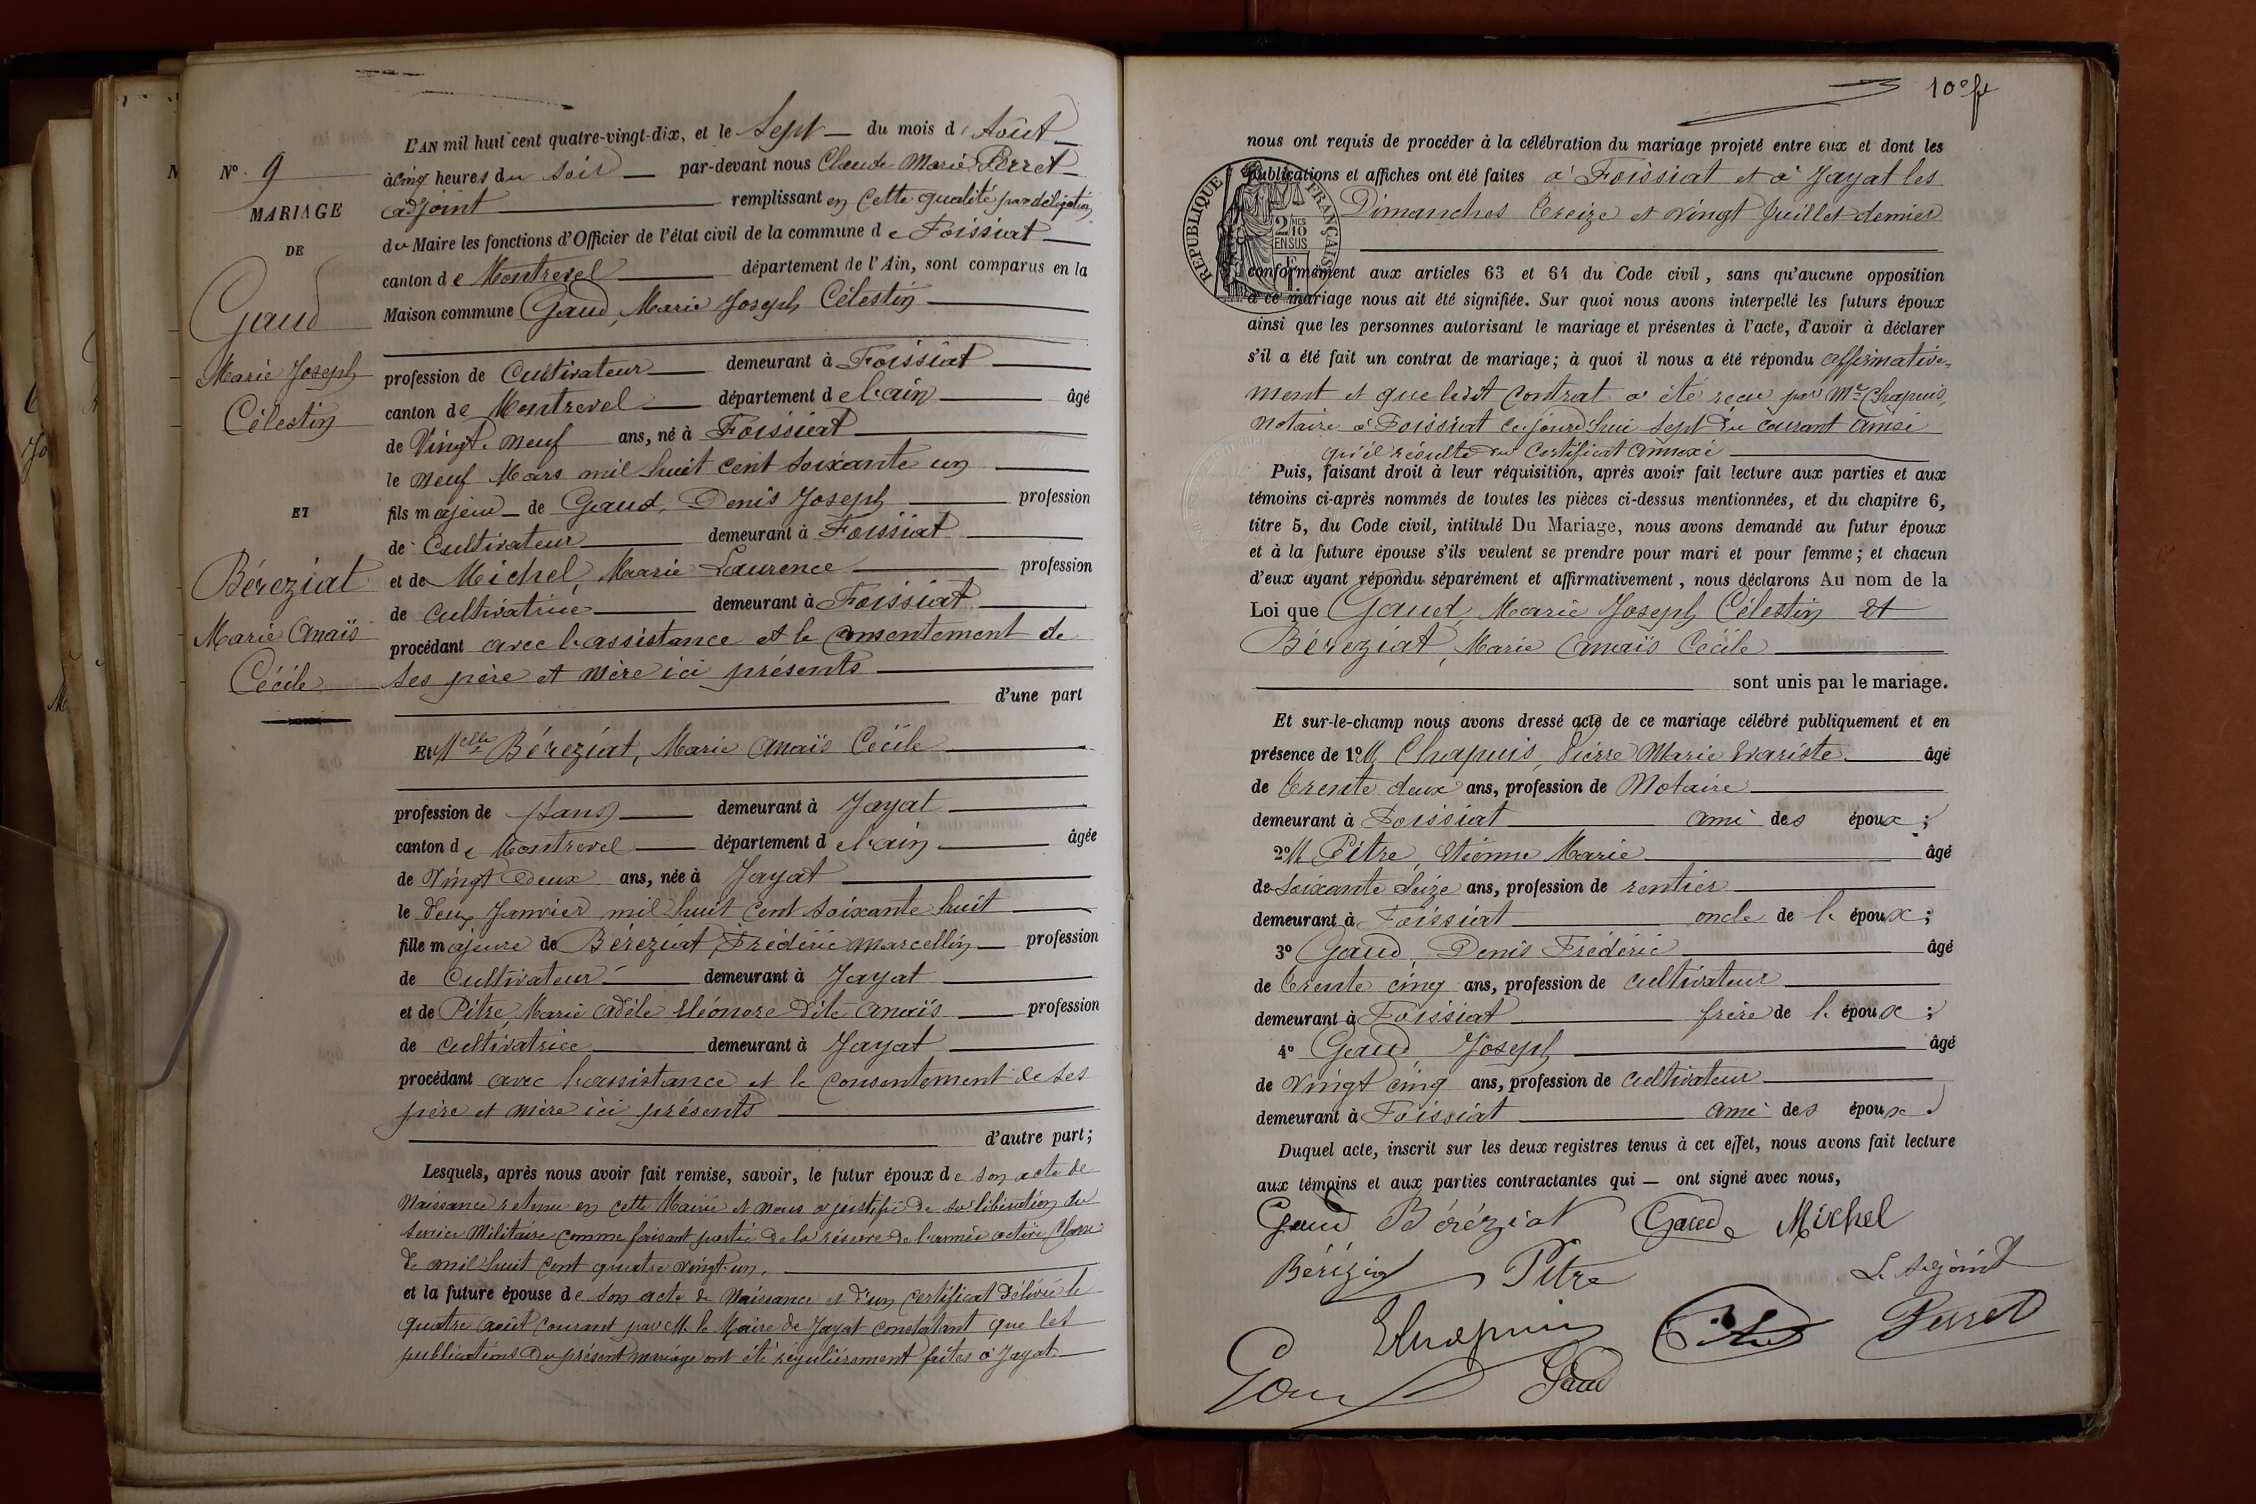 L'AN mil huit cent quatre-vingt-dix, et le Sept du mois d'Août
N° 9
à cinq heures du soir par-devant nous Claude Marie Perret
MARIAGE
adjoint remplissant en cette qualité par délégation
DE
du Maire les fonctions d'Officier de l'état civil de la commune de Foissiat
canton de Montrevel département de l'Ain, sont comparus en la
Gaud
Maison commune Gaud, Marie Joseph Célestin
Marie Joseph
Célestin
profession de Cultivateur demeurant à Foissiat
canton de Montrevel département de l'ain âgé
de Vingt-neuf ans, né à Foissiat
le neuf Mars mil huit cent soixante un
ET
fils majeur de Gaud, Denis Joseph profession
de Cultivateur demeurant à Foissiat
Béreziat
et de Michel, Marie Laurence profession
de cultivatrice demeurant à Foissiat
Marie Anaïs
procédant avec l'assistance et le consentement de
Cécile
ses père et mère ici présents
d'une part
Et Melle Béreziat, Marie Anaïs Cécile
profession de sans demeurant à Jayat
canton de Montrevel département de l'ain âgée
de Vingt Deux ans, née à Jayat
le deux Janvier mil huit cent soixante huit
fille majeure de Béreziat, Frédéric Marcellin profession
de Cultivateur demeurant à Jayat
et de Pitre, Marie Adèle Eléonore dite Anaïs profession
de cultivatrice demeurant à Jayat
procédant avec l'assistance et le consentement de ses
père et mère ici présents
d'autre part;
Lesquels, après nous avoir fait remise, savoir, le futur époux de son acte de
Naissance retenu en cette Mairie et nous a justifié de sa libération du
Service Militaire comme faisant partie de la réserve de l'armée active, Classe
de mil huit cent quatre vingt-un.
et la future épouse de son acte de Naissance et d'un certificat délivré le
quatre août courant par M. le Maire de Jayat constatant que les
publications du présent mariage ont été régulièrement faites à Jayat
10e ft
nous ont requis de procéder à la célébration du mariage projeté entre eux et dont les
publications et affiches ont été faites à Foissiat et à Jayat les
Dimanches treize et vingt Juillet dernier
RÉPUBLIQUE FRANÇAISE
2/10
EN SUS
conformément aux articles 63 et 64 du Code civil, sans qu'aucune opposition
à ce mariage nous ait été signifiée. Sur quoi nous avons interpellé les futurs époux
ainsi que les personnes autorisant le mariage et présentes à l'acte, d'avoir à déclarer
s'il a été fait un contrat de mariage; à quoi il nous a été répondu affirmative-
ment et que ledit contrat a été reçu par Me Chapuis,
notaire à Foissiat cejourd'hui sept du courant ainsi
qu'il résulte du certificat annexé
Puis, faisant droit à leur réquisition, après avoir fait lecture aux parties et aux
témoins ci-après nommés de toutes les pièces ci-dessus mentionnées, et du chapitre 6,
titre 5, du Code civil, intitulé Du Mariage, nous avons demandé au futur époux
et à la future épouse s'ils veulent se prendre pour mari et pour femme; et chacun
d'eux ayant répondu séparément et affirmativement, nous déclarons Au nom de la
Loi que Gaud, Marie Joseph Célestin et
Béreziat, Marie Anaïs Cécile
sont unis par le mariage.
Et sur-le-champ nous avons dressé acte de ce mariage célébré publiquement et en
présence de 1° M. Chapuis, Pierre Marie Evariste âgé
de trente deux ans, profession de Notaire
demeurant à Foissiat ami des époux;
2° M Pitre, Etienne Marie âgé
de soixante seize ans, profession de rentier
demeurant à Foissiat oncle de l'époux;
3° Gaud, Denis Frédéric âgé
de trente cinq ans, profession de cultivateur
demeurant à Foissiat frère de l'époux;
4° Gaud, Joseph âgé
de vingt cinq ans, profession de cultivateur
demeurant à Foissiat ami des époux
Duquel acte, inscrit sur les deux registres tenus à cet effet, nous avons fait lecture
aux témoins et aux parties contractantes qui — ont signé avec nous,
Gaud Béréziat Gaud Michel
Béréziat Pitre L'adjoint
Chapuis Pitre Perret
Gaud Gaud